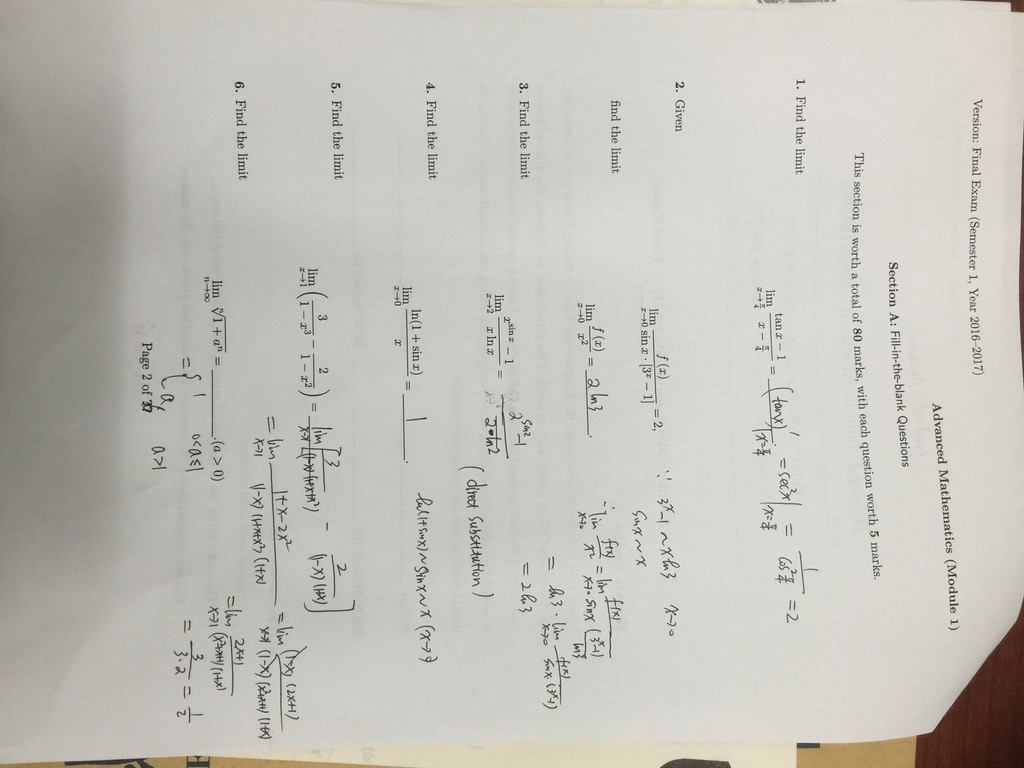 Version: Final Exam (Semester 1, Year 2016–2017)
Advanced Mathematics (Module 1)
Section A: Fill-in-the-blank Questions
This section is worth a total of 80 marks, with each question worth 5 marks.
1. Find the limit
lim x→π/4 (tan x − 1)/(x − π/4) = (tanx)′|x=π/4 = sec²x|x=π/4 = 1/cos²π/4 = 2
2. Given
lim x→0 f(x)/(sin x · [3^x − 1]) = 2,
∵ 3^x−1 ~ xln3 x→0
sinx ~ x
find the limit
lim x→0 f(x)/x² = 2ln3.
∴ lim x→0 f(x)/x² = lim x→0 f(x)/(sinx (3^x−1)/ln3)
= ln3 · lim x→0 f(x)/(sinx (3^x−1))
= 2ln3
3. Find the limit
lim x→2 (x^(sin x) − 1)/(x ln x) = (2^(sin2) −1)/(2•ln2)
(direct substitution)
4. Find the limit
lim x→0 ln(1 + sin x)/x = 1.
ln(1+sinx) ~ sinx ~ x (x→
5. Find the limit
lim x→1 (3/(1 − x³) − 2/(1 − x²)) = lim x→1 [3/((1-x)(1+x+x²)) − 2/((1-x)(1+x))]
= lim x→1 (1+x−2x²)/((1-x)(1+x+x²)(1+x)) = lim x→1 (1-x)(2x+1)/((1-x)(x²+x+1)(1+x))
= lim x→1 (2x+1)/((x²+x+1)(1+x))
= 3/(3·2) = 1/2
6. Find the limit
lim n→∞ ⁿ√(1 + aⁿ) = ______.(a > 0)
= { 1 0<a≤1
a, a>1
Page 2 of